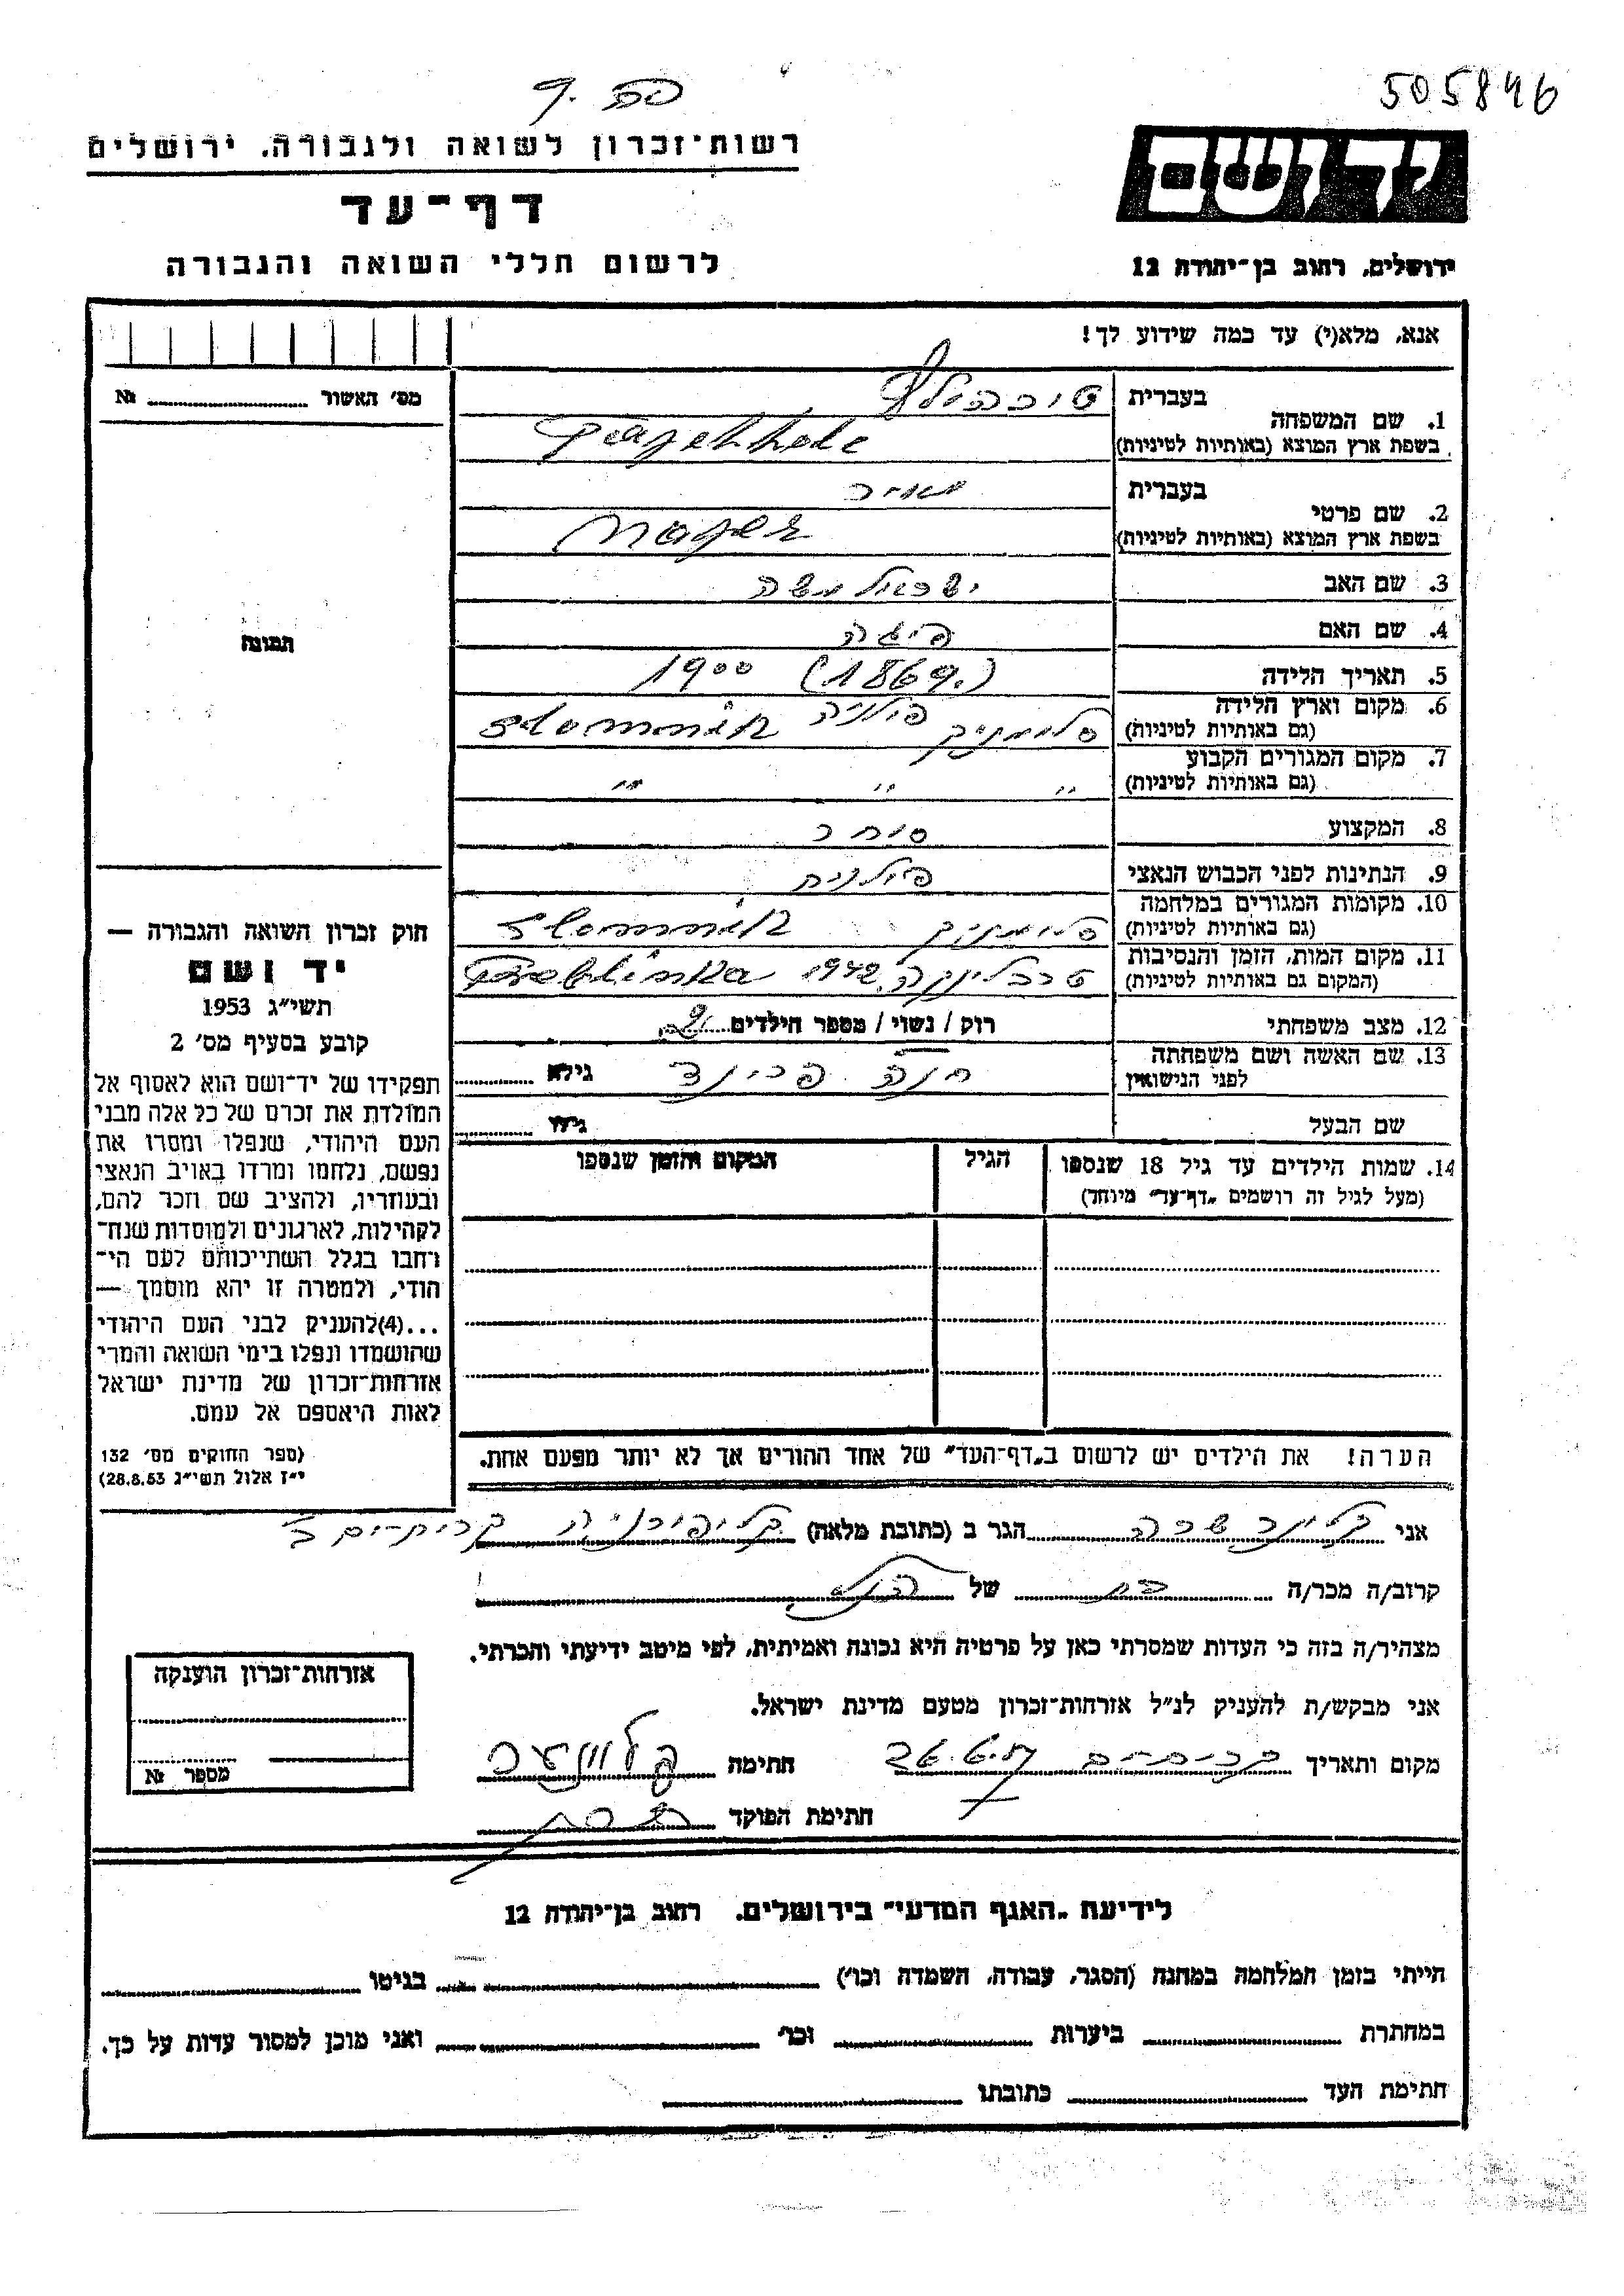 505846
רשות־זכרון לשואה ולגבורה, ירושלים
יד ושם
דף־עד
לרשום חללי השואה והגבורה
ירושלים, רחוב בן־יהודה 12
אנא, מלא(י) עד כמה שידוע לך!
מס׳ האשור № 
תמונה
1. שם המשפחה
בעברית
בשפת ארץ המוצא (באותיות לטיניות)
2. שם פרטי
בעברית מאיר
בשפת ארץ המוצא (באותיות לטיניות) Majer
3. שם האב ישראל משה
4. שם האם פיגה
5. תאריך הלידה (1869.) 1900
6. מקום וארץ הלידה
(גם באותיות לטיניות) סלומניק פולניה Slomnik
7. מקום המגורים הקבוע
(גם באותיות לטיניות) ״ ״ ״
8. המקצוע סוחר
9. הנתינות לפני הכבוש הנאצי פולנית
10. מקומות המגורים במלחמה
(גם באותיות לטיניות) סלומניק Slomnik
11. מקום המות, הזמן והנסיבות
(המקום גם באותיות לטיניות) טרבלינקה 1942 Treblinka
12. מצב משפחתי רוק / נשוי / מספר הילדים 2
13. שם האשה ושם משפחתה
לפני הנישואין חנה פרינד גילא
שם הבעל גילו
14. שמות הילדים עד גיל 18 שנספו
(מעל לגיל זה רושמים „דף־עד״ מיוחד)
הגיל
המקום והזמן שנספו
הערה! את הילדים יש לרשום ב„דף־העד״ של אחד ההורים אך לא יותר מפעם אחת.
חוק זכרון השואה והגבורה —
יד ושם
תשי״ג 1953
קובע בסעיף מס׳ 2
תפקידו של יד־ושם הוא לאסוף אל
המולדת את זכרם של כל אלה מבני
העם היהודי, שנפלו ומסרו את
נפשם, נלחמו ומרדו באויב הנאצי
ובעוזריו, ולהציב שם וזכר להם,
לקהילות, לארגונים ולמוסדות שנח־
רחבו בגלל השתייכותם לעם הי־
הודי, ולמטרה זו יהא מוסמך —
...(4)להעניק לבני העם היהודי
שהושמדו ונפלו בימי השואה והמרי
אזרחות־זכרון של מדינת ישראל
לאות היאספם אל עמם.
(ספר החוקים מס׳ 132
י״ז אלול תשי״ג 28.8.53)
אני קלינר שרה הגר ב (כתובת מלאה) קליפורניה קריות־ים
קרוב/ה מכר/ה בת של הנ״ל
מצהיר/ה בזה כי העדות שמסרתי כאן על פרטיה היא נכונה ואמיתית, לפי מיטב ידיעתי והכרתי.
אני מבקש/ת להעניק לנ״ל אזרחות־זכרון מטעם מדינת ישראל.
מקום ותאריך חתימה
חתימת הפוקד
אזרחות־זכרון הוענקה
מספר №
לידיעת „האגף המדעי״ בירושלים. רחוב בן־יהודה 12
הייתי בזמן המלחמה במחנה (הסגר, עבודה, השמדה וכו׳) בגיטו
במחתרת ביערות וכו׳ ואני מוכן למסור עדות על כך.
חתימת העד כתובתו